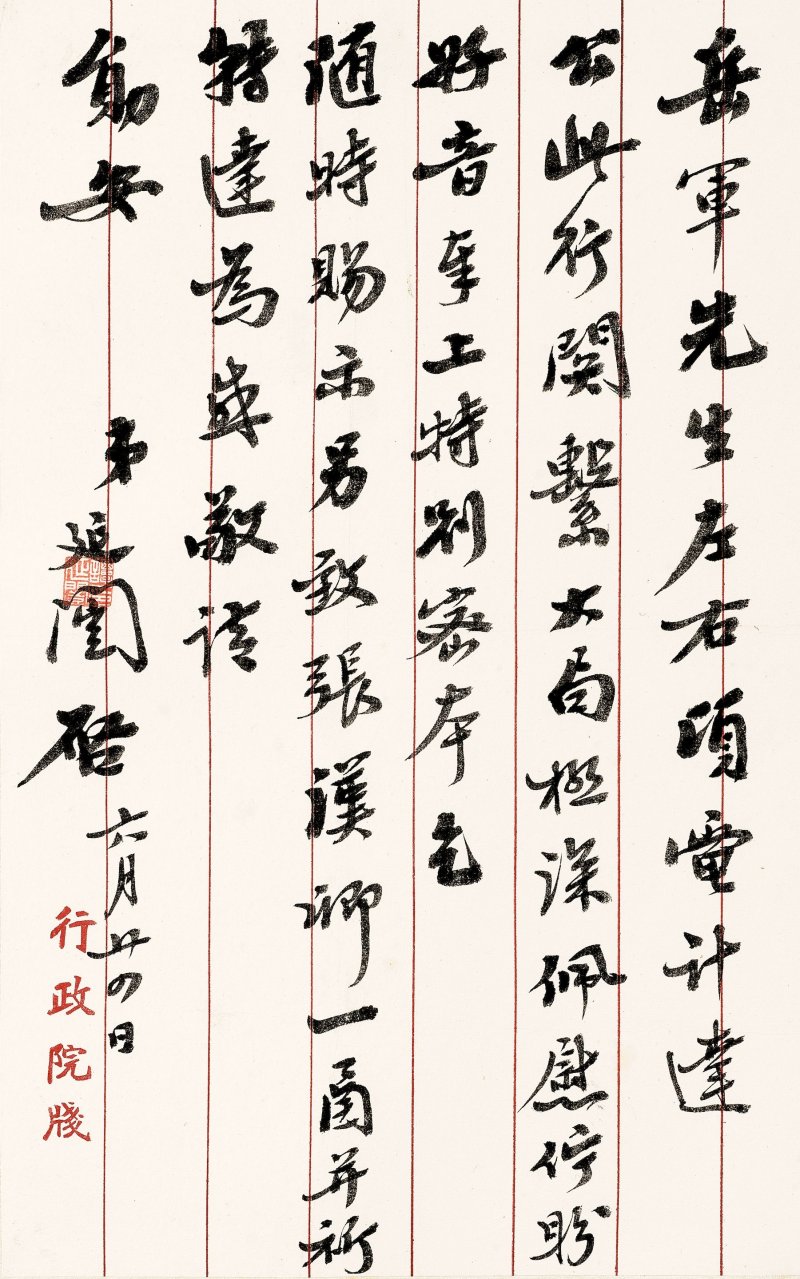 岳軍先生左右頃電計達
公此行関繫大局極深佩慰佇盼
好音奉上特別密本乞
隨時賜示另致張漢卿一函并祈
轉達為感敬請
勛安
弟延闓啓六月廿四日
行政院牋